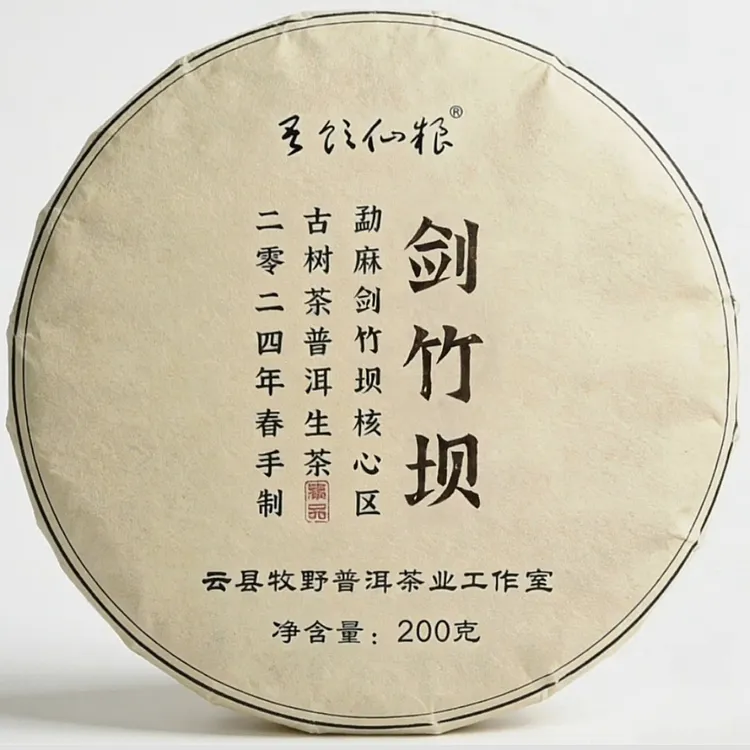 吾饮仙粮®
剑竹坝
勐麻剑竹坝核心区
古树茶普洱生茶
二零二四年春手制
云县牧野普洱茶业工作室
净含量：200克